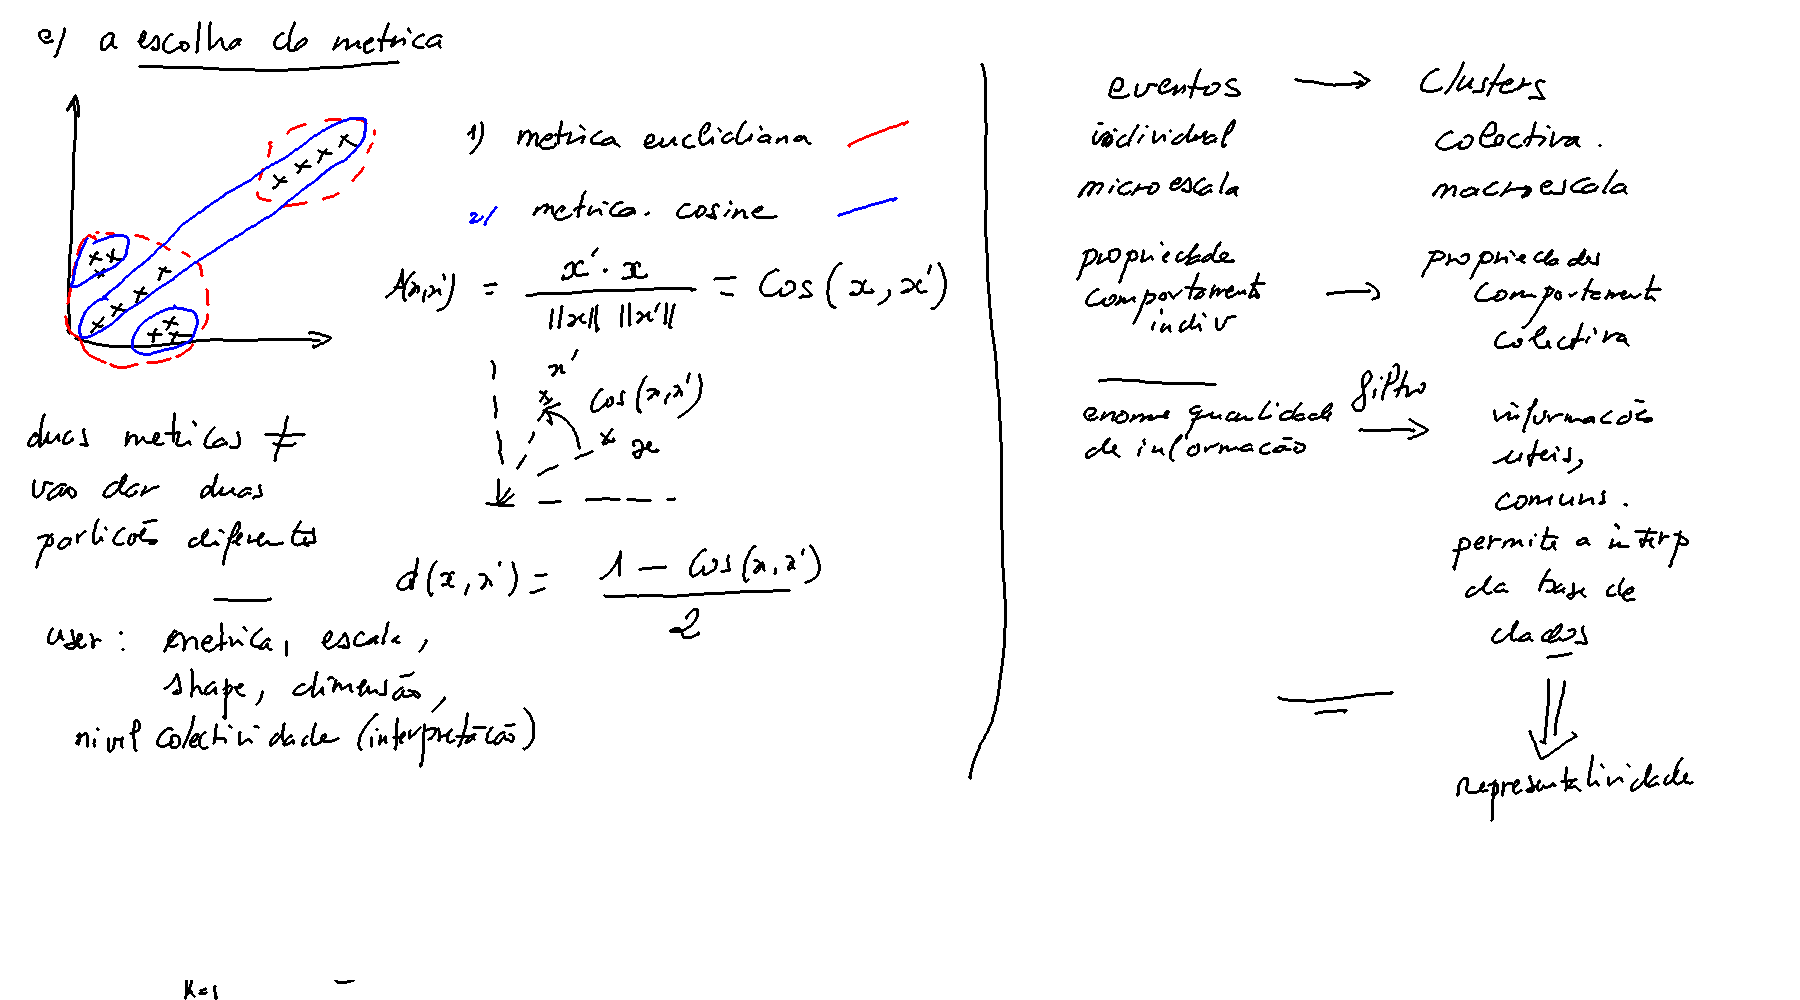 e) a escolha do metrica
1) metrica euclidiana
2) metrica. cosine
s(x,x') = x'·x / ||x|| ||x'|| = Cos(x,x')
x'
Cos(x,x')
x
d(x,x') = 1 - Cos(x,x') / 2
duas metricas ≠
vao dar duas
particoẽs diferentes
user : metrica, escala,
shape, dimensão,
nivel colectividade (interpretação)
K=1
eventos → Clusters
individual colectiva.
microescala macroescala
propriedade propriedades
comportamento → comportamento
indiv colectiva
enorme quantidade filtro informacoẽs
de informacão → uteis,
comuns.
permite a interp
da base de
dados
representatividade